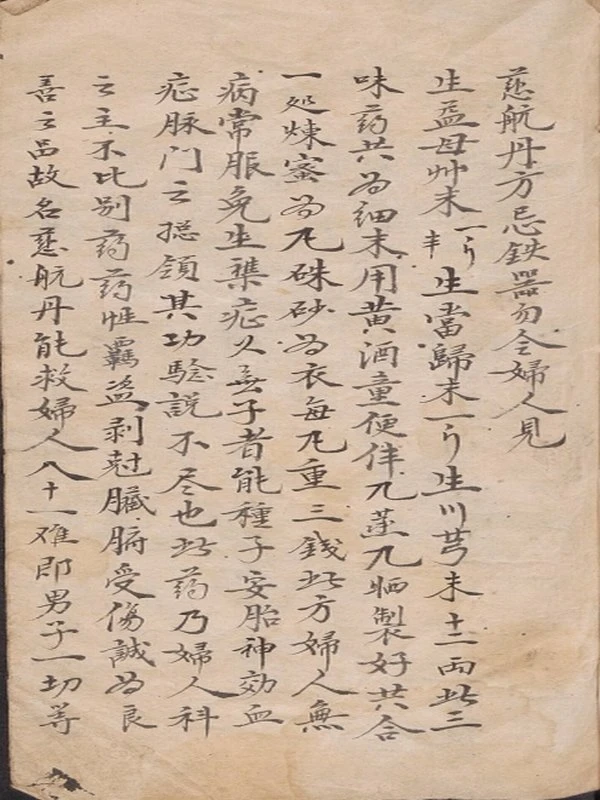 慈航丹方忌鉄器勿令婦人見
生益母艸末一斤半生當歸末一斤生川芎末十二両此三
味药共为細末用黄酒童便伴九蒸九晒製好共合
一処煉蜜为丸硃砂为衣每丸重三錢此方婦人無
病常服免生襍症久無子者能種子安胎神効血
症脉门之揔領其功騐説不尽也此药乃婦人科
之主不比别药药性霸盗剥尅臟腑受傷誠为良
善之品故名慈航丹能救婦人八十一难即男子一切等